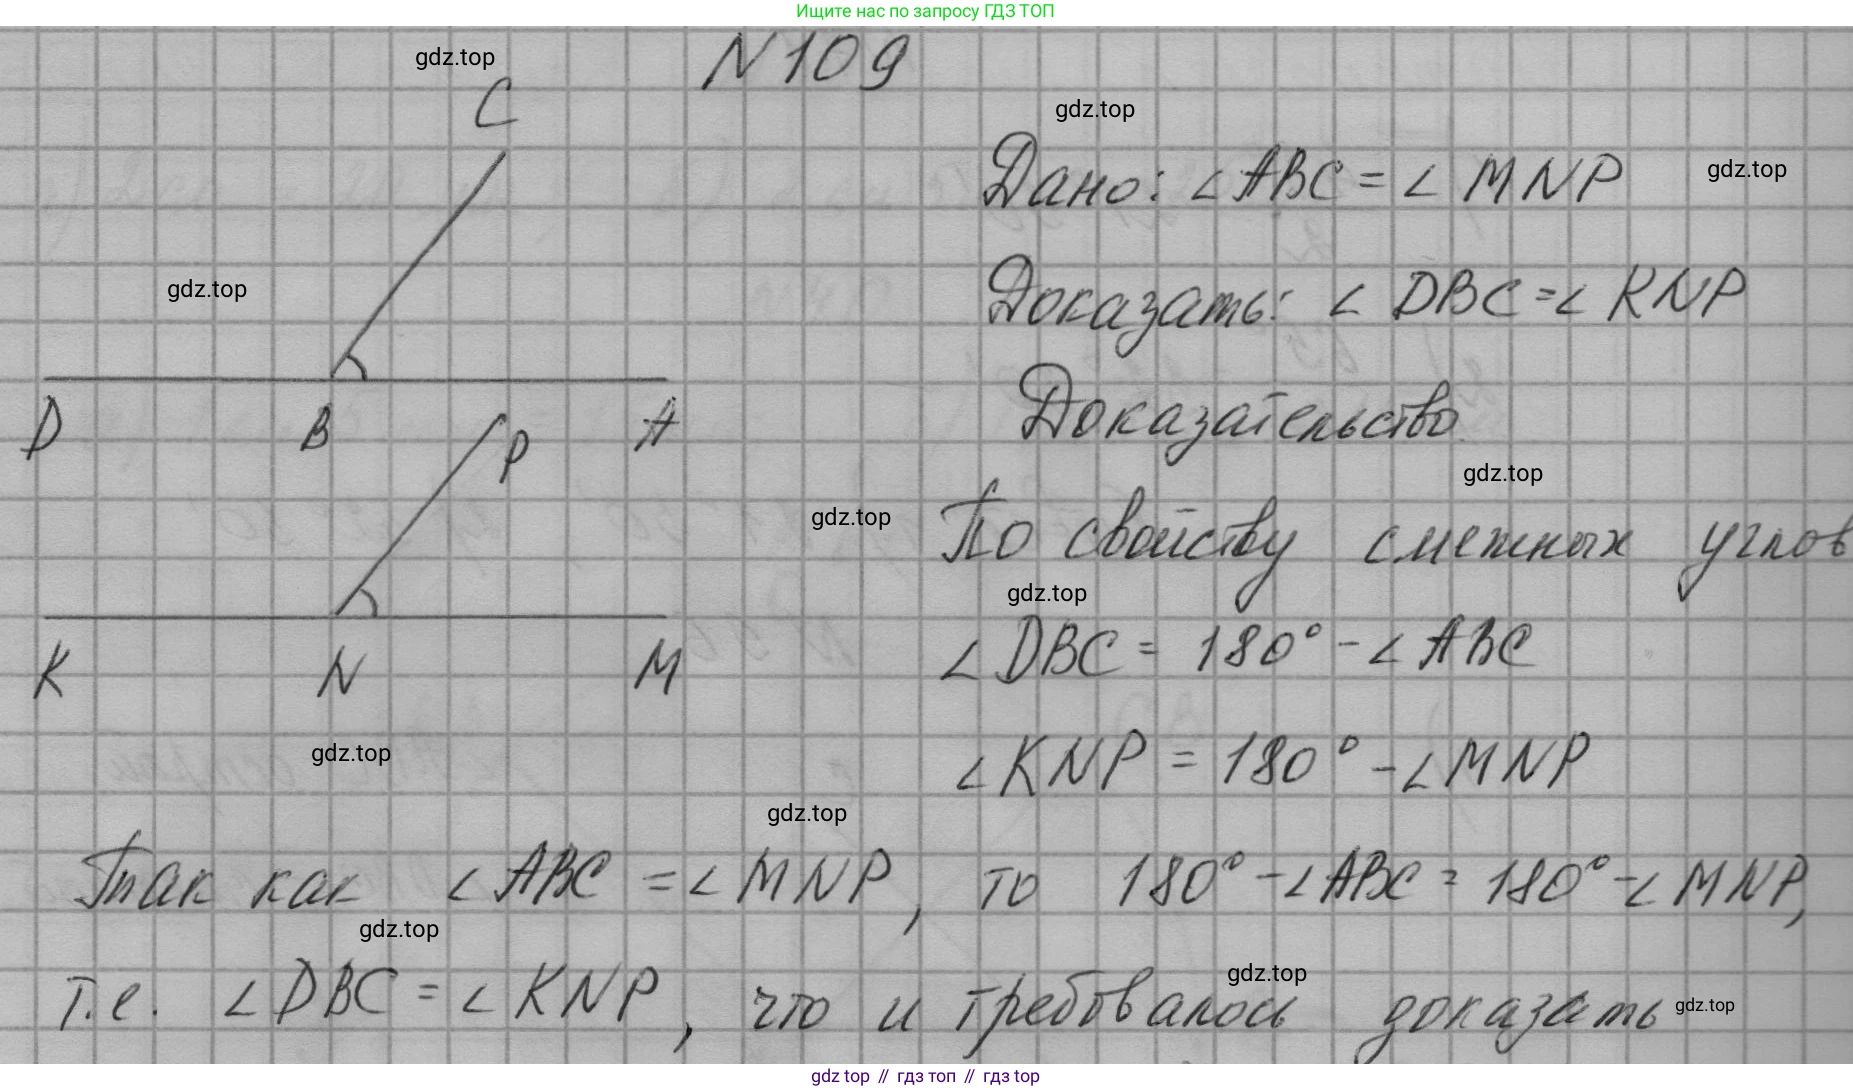 Ищите нас по запросу ГДЗ ТОП
N109
gdz.top
C
gdz.top
Дано: ∠ABC = ∠MNP
gdz.top
gdz.top
Доказать: ∠DBC = ∠KNP
D B A
P
Доказательство
gdz.top
gdz.top
По свойству смежных углов
gdz.top
∠DBC = 180° - ∠ABC
K N M
gdz.top
∠KNP = 180° - ∠MNP
gdz.top
Так как ∠ABC = ∠MNP, то 180° - ∠ABC = 180° - ∠MNP,
gdz.top
gdz.top
т.е. ∠DBC = ∠KNP, что и требовалось доказать
gdz.top
gdz top // гдз топ // гдз top